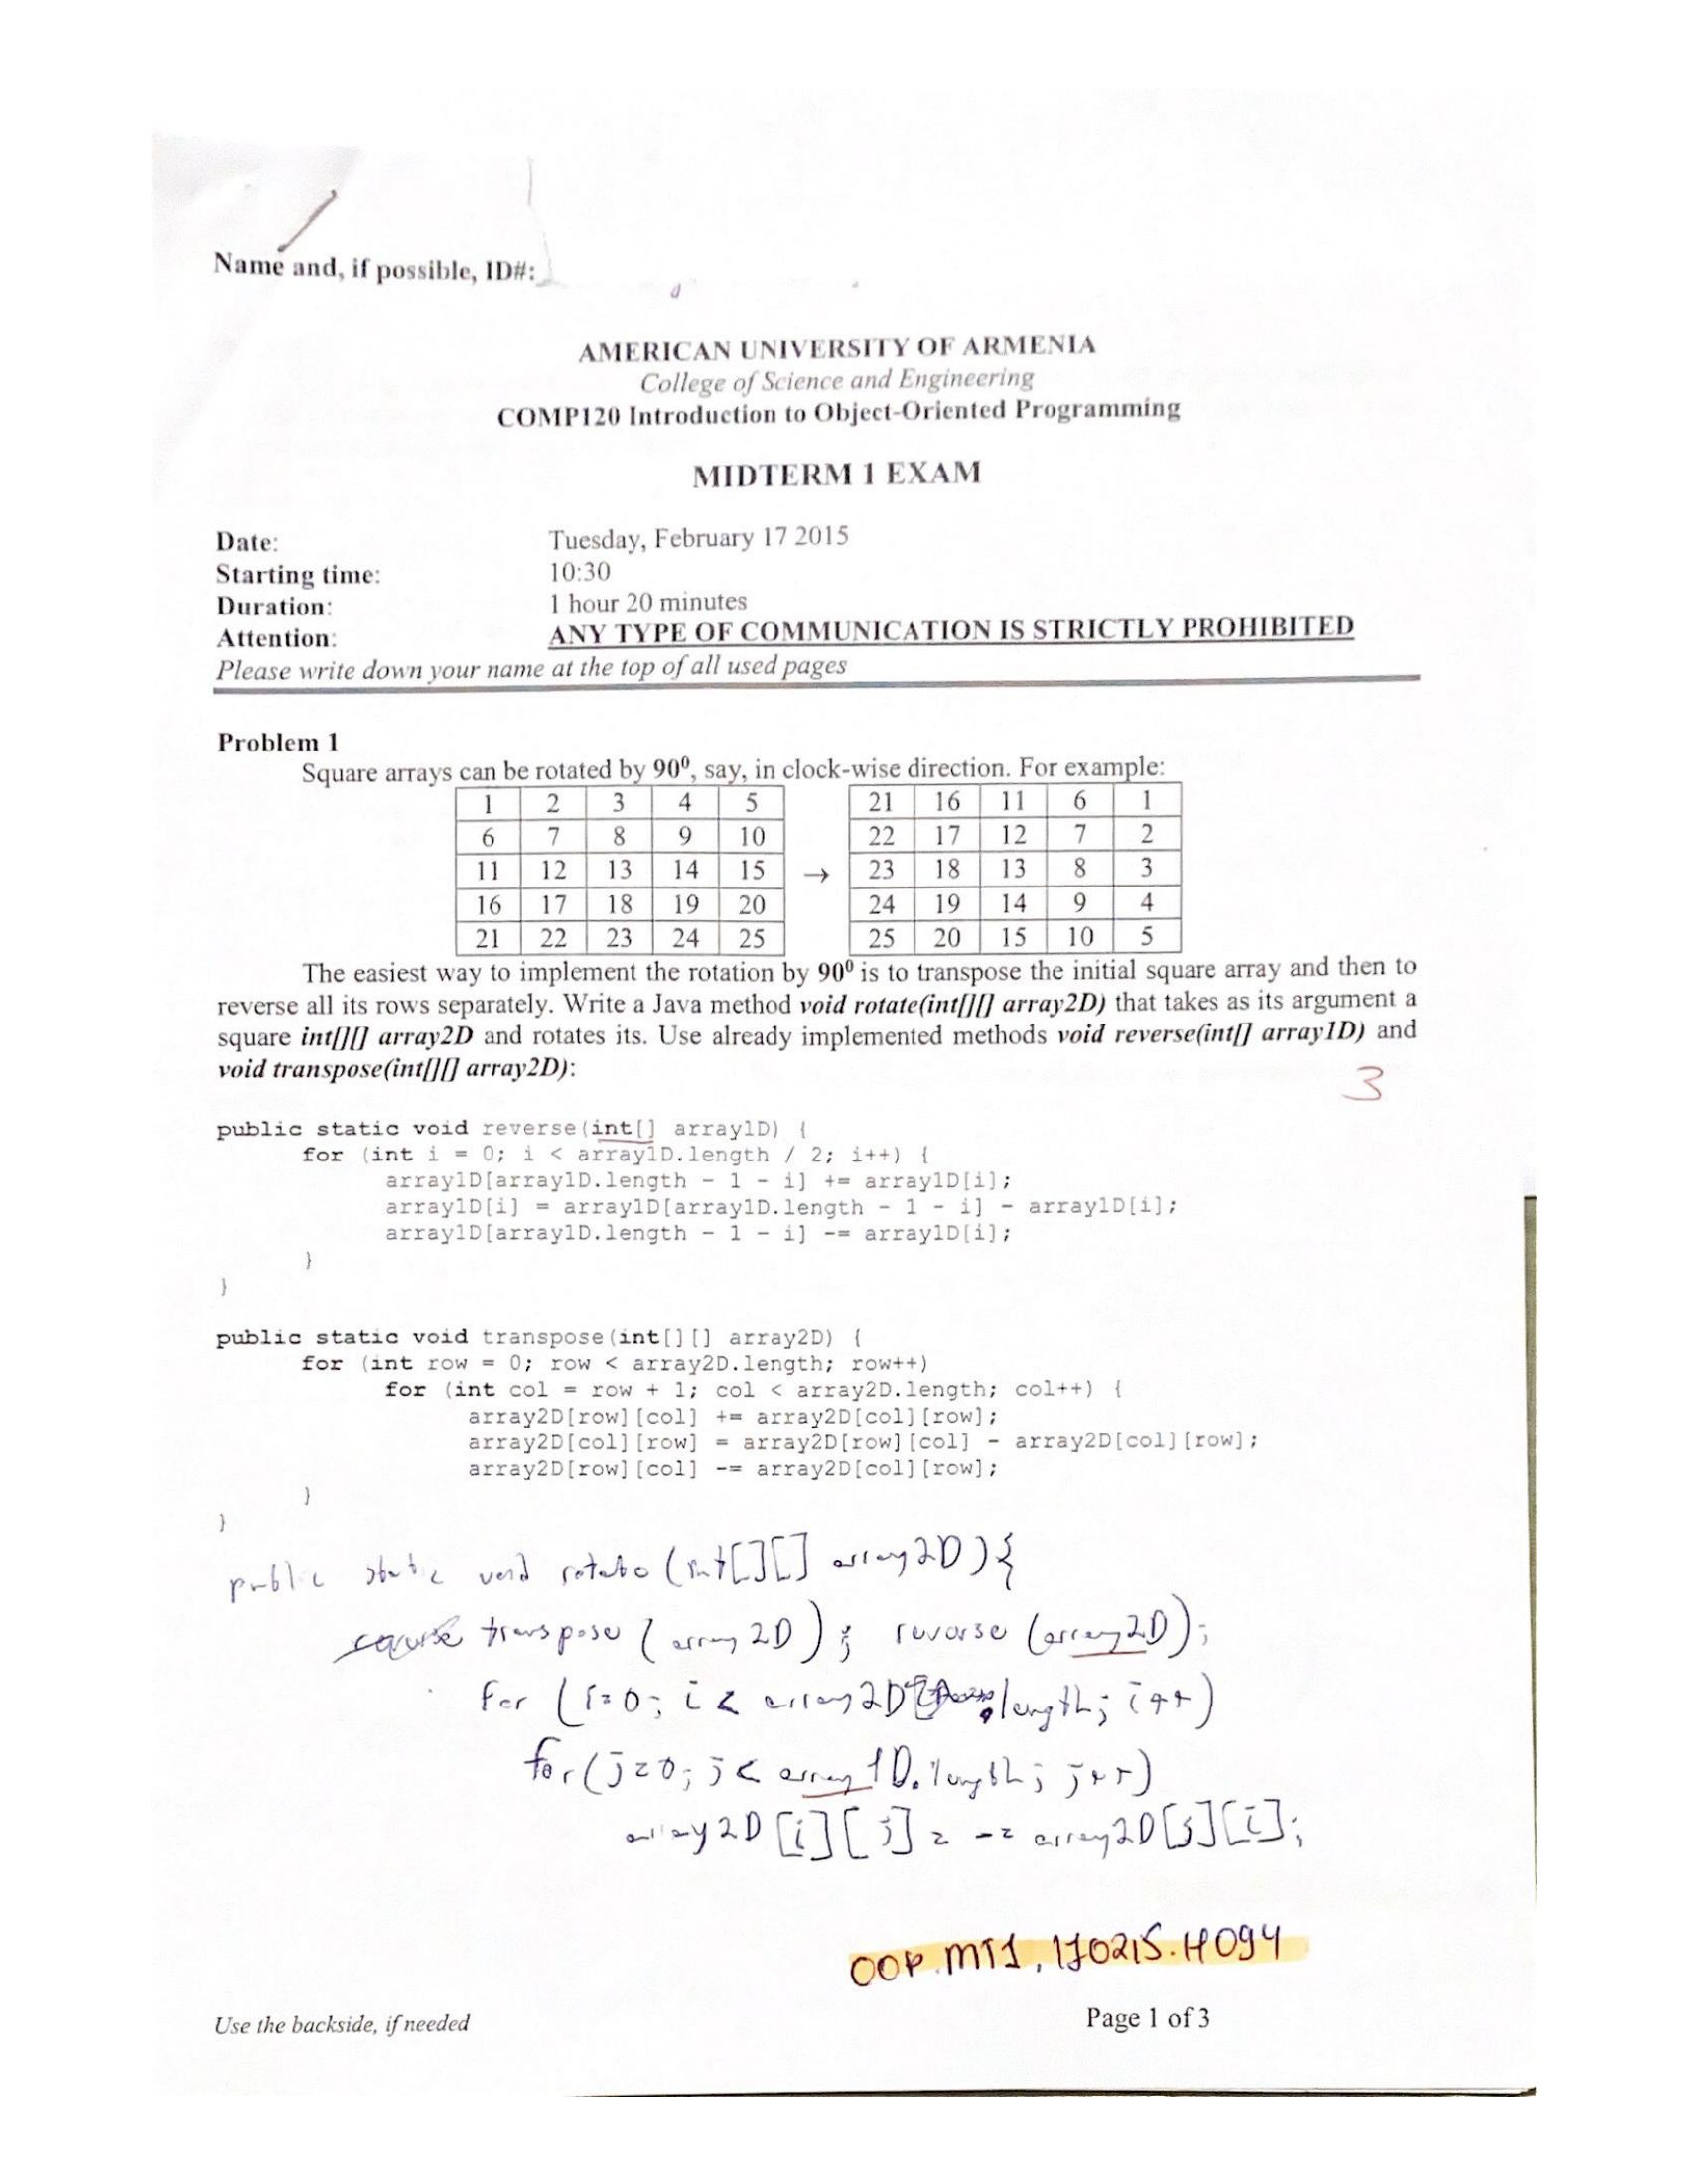 Name and, if possible, ID#:
AMERICAN UNIVERSITY OF ARMENIA
College of Science and Engineering
COMP120 Introduction to Object-Oriented Programming
MIDTERM 1 EXAM
Date: Tuesday, February 17 2015
Starting time: 10:30
Duration: 1 hour 20 minutes
Attention: ANY TYPE OF COMMUNICATION IS STRICTLY PROHIBITED
Please write down your name at the top of all used pages
Problem 1
Square arrays can be rotated by 90⁰, say, in clock-wise direction. For example:
1 2 3 4 5 21 16 11 6 1
6 7 8 9 10 22 17 12 7 2
11 12 13 14 15 → 23 18 13 8 3
16 17 18 19 20 24 19 14 9 4
21 22 23 24 25 25 20 15 10 5
The easiest way to implement the rotation by 90⁰ is to transpose the initial square array and then to
reverse all its rows separately. Write a Java method void rotate(int[][] array2D) that takes as its argument a
square int[][] array2D and rotates its. Use already implemented methods void reverse(int[] array1D) and
void transpose(int[][] array2D):
3
public static void reverse(int[] array1D) {
for (int i = 0; i < array1D.length / 2; i++) {
array1D[array1D.length - 1 - i] += array1D[i];
array1D[i] = array1D[array1D.length - 1 - i] - array1D[i];
array1D[array1D.length - 1 - i] -= array1D[i];
}
}
public static void transpose(int[][] array2D) {
for (int row = 0; row < array2D.length; row++)
for (int col = row + 1; col < array2D.length; col++) {
array2D[row][col] += array2D[col][row];
array2D[col][row] = array2D[row][col] - array2D[col][row];
array2D[row][col] -= array2D[col][row];
}
}
public static void rotate (int[][] array2D) {
transpose (array 2D); reverse (array2D);
for (i=0; i < array2D.length; i++)
for(j=0; j< array1D.length; j++)
array2D[i][j] = -= array2D[j][i];
OOP.MT1.170215.H094
Use the backside, if needed
Page 1 of 3